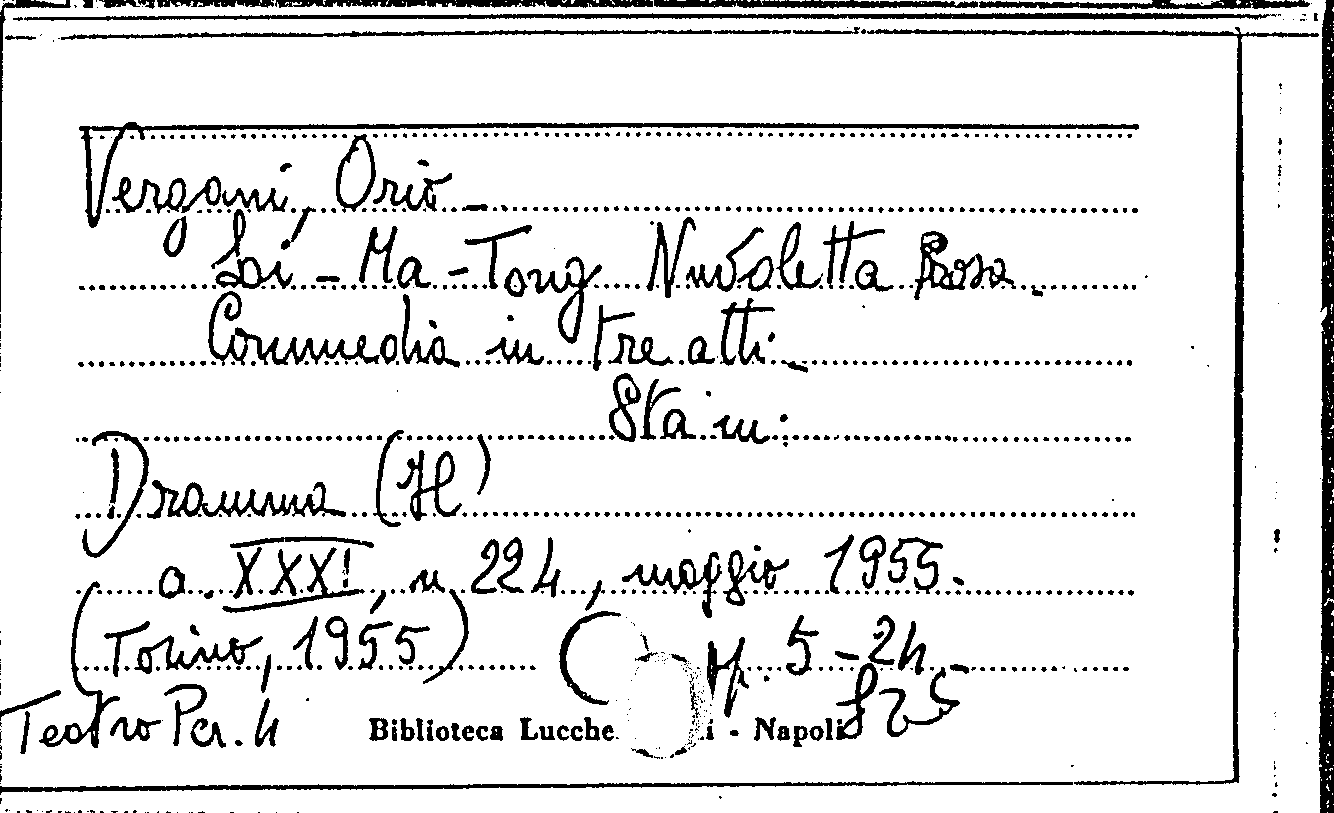 Vergani, Orio -
Loi - Ma - Tong Nuvoletta Rosa.
Commedia in tre atti. -
Sta in:
Dramma (Il)
a. XXXI, n 224, maggio 1955.
(Torino, 1955) pp. 5-24. -
Teatro Per. 4 Biblioteca Lucche i - Napoli